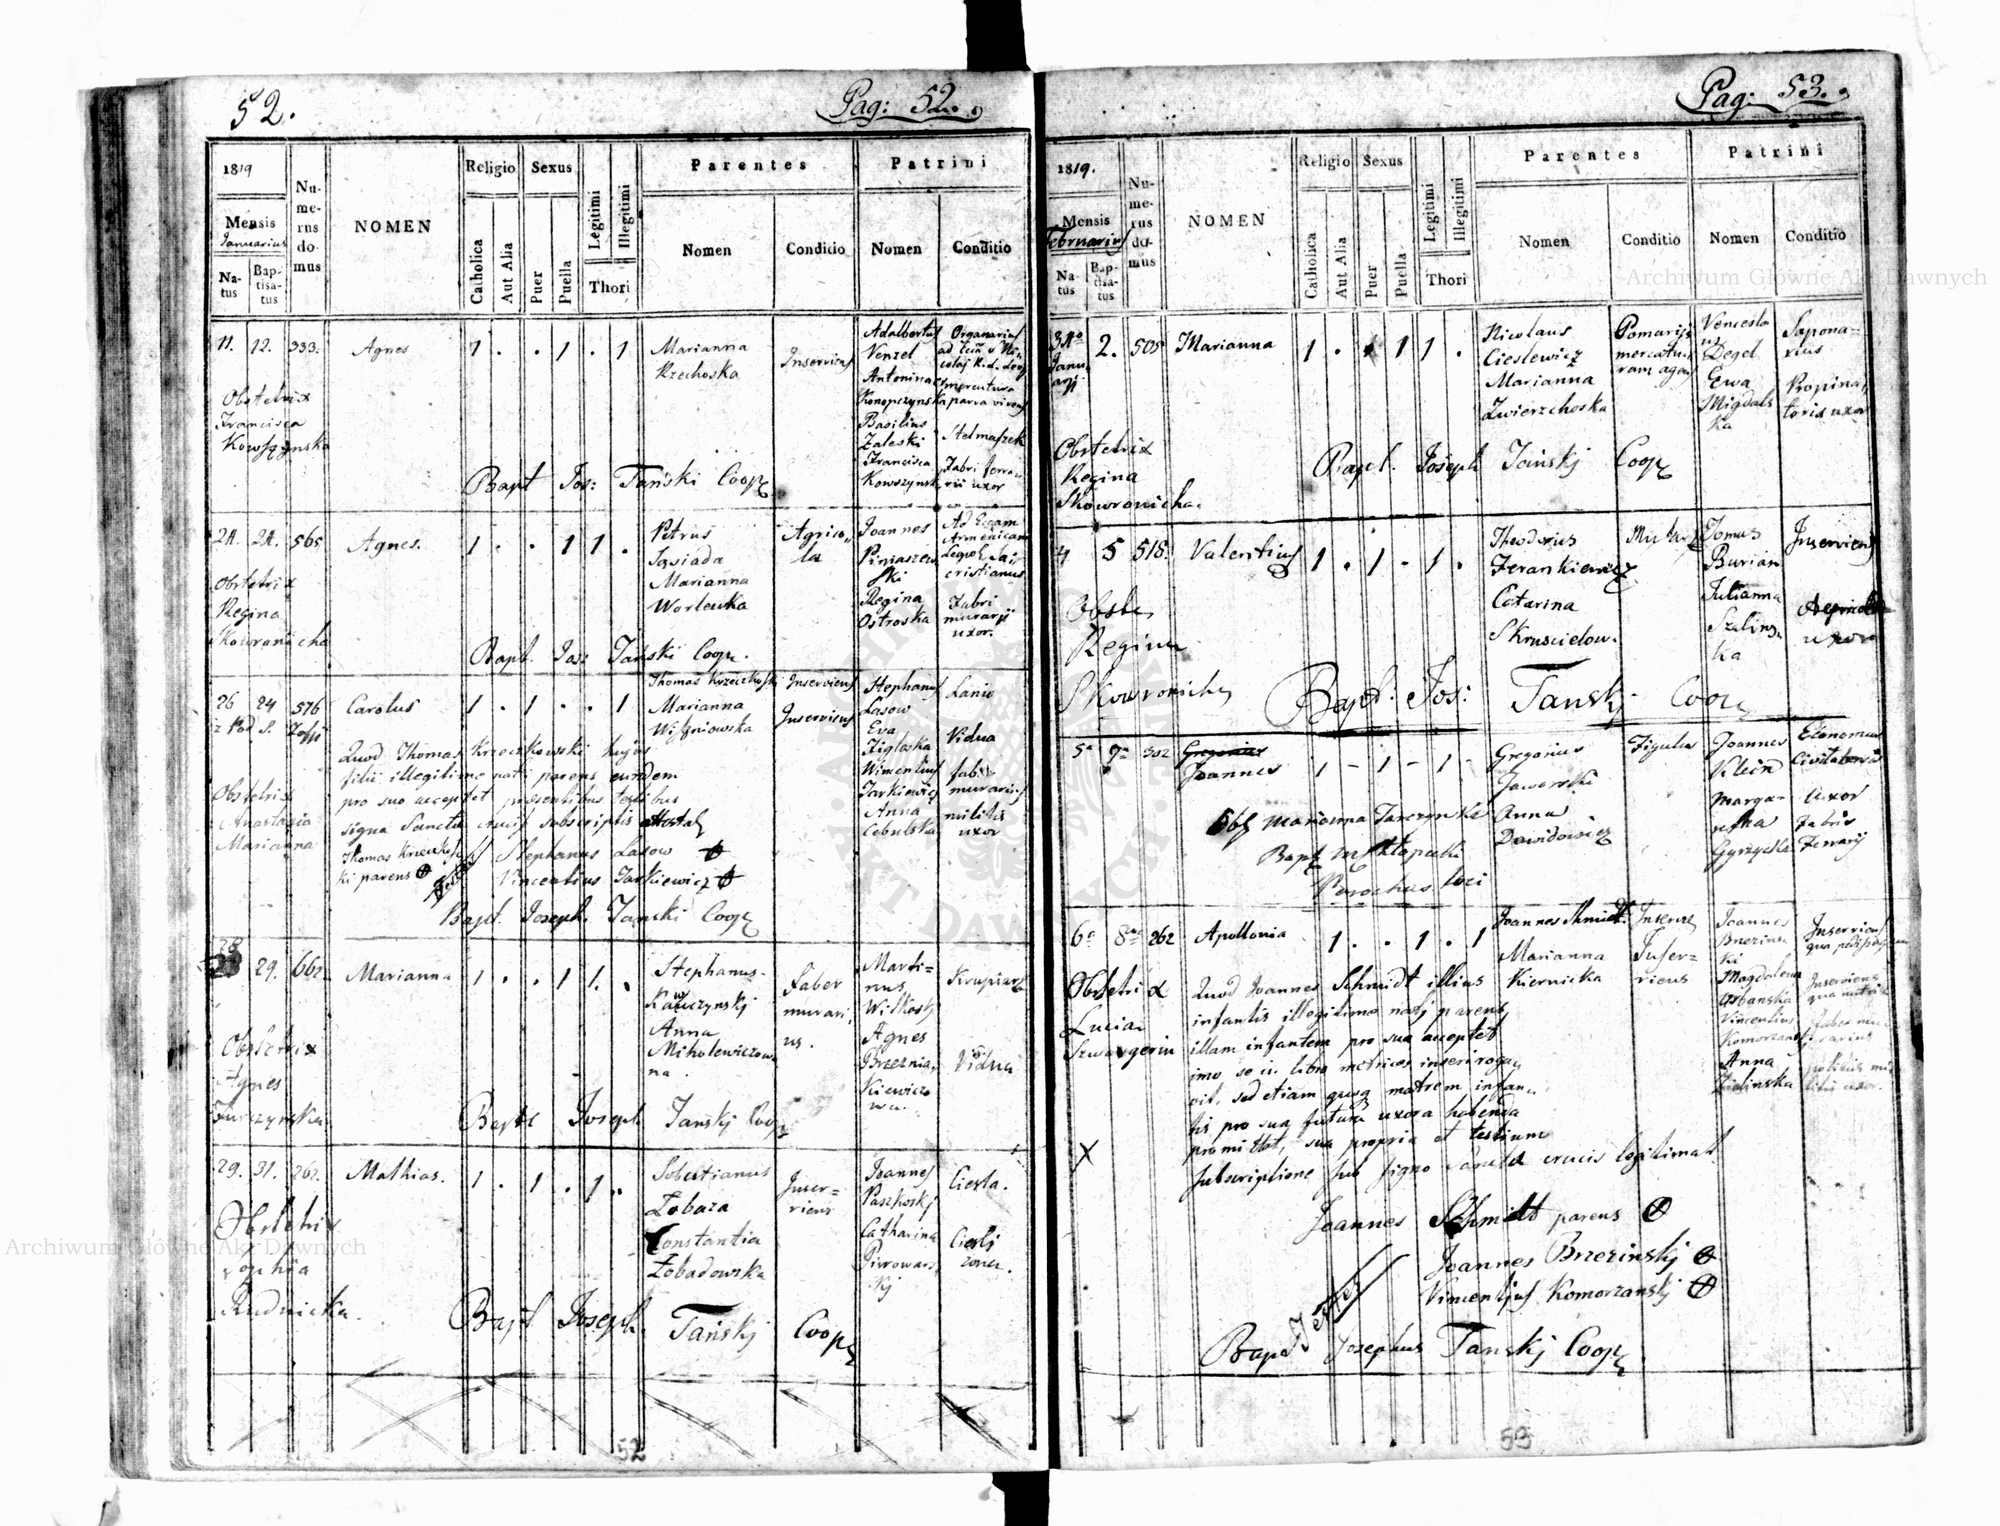 52.
Pag: 52.
1819
Mensis
Januarius
Na-
tus
Bap-
tisa-
tus
Nu-
me-
rus
do-
mus
NOMEN
Religio
Catholica
Aut Alia
Sexus
Puer
Puella
Legitimi
Illegitimi
Thori
Parentes
Nomen
Conditio
Patrini
Nomen
Conditio
11. 12. 333. Agnes 1 . . 1 . 1
Marianna
Rzechoska
Inserviens
Adalbertus
Venzel
Antonina
Konopczynska
Basilius
Zaleski
Francisca
Kowszynsk
Organarius
mercatura
parva vivens
Stelmaszek
Fabri ferra-
rii uxor
Obstetrix
Francisca
Kowszynska
Bapt Jos: Tański Coop
24. 24. 565 Agnes. 1 . . 1 1 .
Petrus
Sąsiada
Marianna
Worlewka
Agrico-
la
Joannes
Piniaszew
ski
Regina
Ostroska
Ad Eccam
Armenicam
Fabri
murarij
uxor.
Obstetrix
Regina
Skowronicha
Bapt. Jos: Tański Coop.
26 24 576 Carolus 1 . 1 . . 1
Thomas Krzeczkoski Inserviens
Marianna
Wiszniowska
Inserviens
Stephanus
Lasow
Eva
Figloska
Wincentius
Jarkiewicz
Anna
Cebulska
Lanio
Vidua
fabr
murarius
militis
uxor
Quod Thomas Krzeczkowski hujus
filii illegitime nati parens eundem
pro suo acceptet praesentibus testibus
signo Sanctae crucis subscriptis attestat
Obstetrix
Anastazia
Marianna
Thomas Krzeczkos
ki parens
Stephanus Lasow
Vincentius Jarkiewicz
Bapt. Joseph. Tanski Coop
28 29. 662. Marianna 1 . . 1 1. .
Stephanus
Kawczynskj
Anna
Miholewiczow
na.
Faber
murari
us.
Marti-
nus
Wilkosk
Agnes
Brzeznia
Kiewiczo
wa.
Krupiarz
Vidua
Obstetrix
Agnes
Jurczynska
Bapt Joseph Tanskj Coop
29. 31. 262. Mathias. 1 . 1 . 1 .
Sebastianus
Łobaza
Constantia
Łobadowska
Inser-
viens
Joannes
Paszkoskj
Catharina
Piwowars
kj
Ciesla.
Ciesli
zona.
Obstetrix
Sophia
Rudnicka.
Bapt Joseph. Tańskj Coop
52
Pag: 53.
1819.
Mensis
Februarius
Na-
tus
Bap-
tisa-
tus
Nu-
me-
rus
do-
mus
NOMEN
Religio
Catholica
Aut Alia
Sexus
Puer
Puella
Legitimi
Illegitimi
Thori
Parentes
Nomen
Conditio
Patrini
Nomen
Conditio
31a
Janu
arji
2. 505 Marianna 1 . . 1 1 .
Nicolaus
Cieslewicz
Marianna
Zwierzchoska
Pomarijs
mercatu
ram agens
Venceslo
us
Degel
Ewa
Migdals
ka
Sapona-
rius
Propina
toris uxor
Obstetrix
Regina
Skowronicha.
Bapt. Joseph Tańskj Coop
4 5 518. Valentius 1 . 1 . 1 .
Theodorus
Zerankiewicz
Catarina
Skruscielow.
Tomas
Burian
Julianna
Szalins
ka
Inserviens
Agricolae
uxor
Obste
Regina
Skowronicha
Bapt: Jos: Tanskj Coop
5a 7a 302 Gregorius
Joannes 1 - 1 - 1 -
Gregorius
Jaworski
Anna
Dawidowicz
Figulus
Joannes
Klein
Marga-
retha
Gyrzycka
Economus
Civitatensis
Uxor
Fabris
Ferrarij
Obs Marianna Jarczynska
Bapt M Kłapecki
Parochus loci
6a 8va 262 Apollonia 1 . . 1 . 1
Joannes Shmidt Inserv
Marianna
Kiernicka
Inser-
viens
Joannes
Brzezins
ki
Magdalena
Urbanska
Vincentius
Komorzansk
Anna
Zielinska
Inserviens
Inserviens
qua nutrix
Faber mu
rarius
militis uxor.
Obstetrix
Lucia
Szwaygerin
Quod Joannes Schmidt illius
infantis illegitime natj parens,
illam infantem pro sua acceptet
imo se in libro metrices inseri roga
vit, sed etiam quoq matrem infan
tis pro sua futura uxora habenda
promittet, sua propria et testium
subscriptione sub signo Sanctae crucis legitimat.
X
Joannes Schmidt parens
Joannes Brzezinskj
Vincentius Komorzanskj
Testes
Bapt Josephus Tanskj Coop
53
Archiwum Główne Akt Dawnych
Archiwum Główne Akt Dawnych